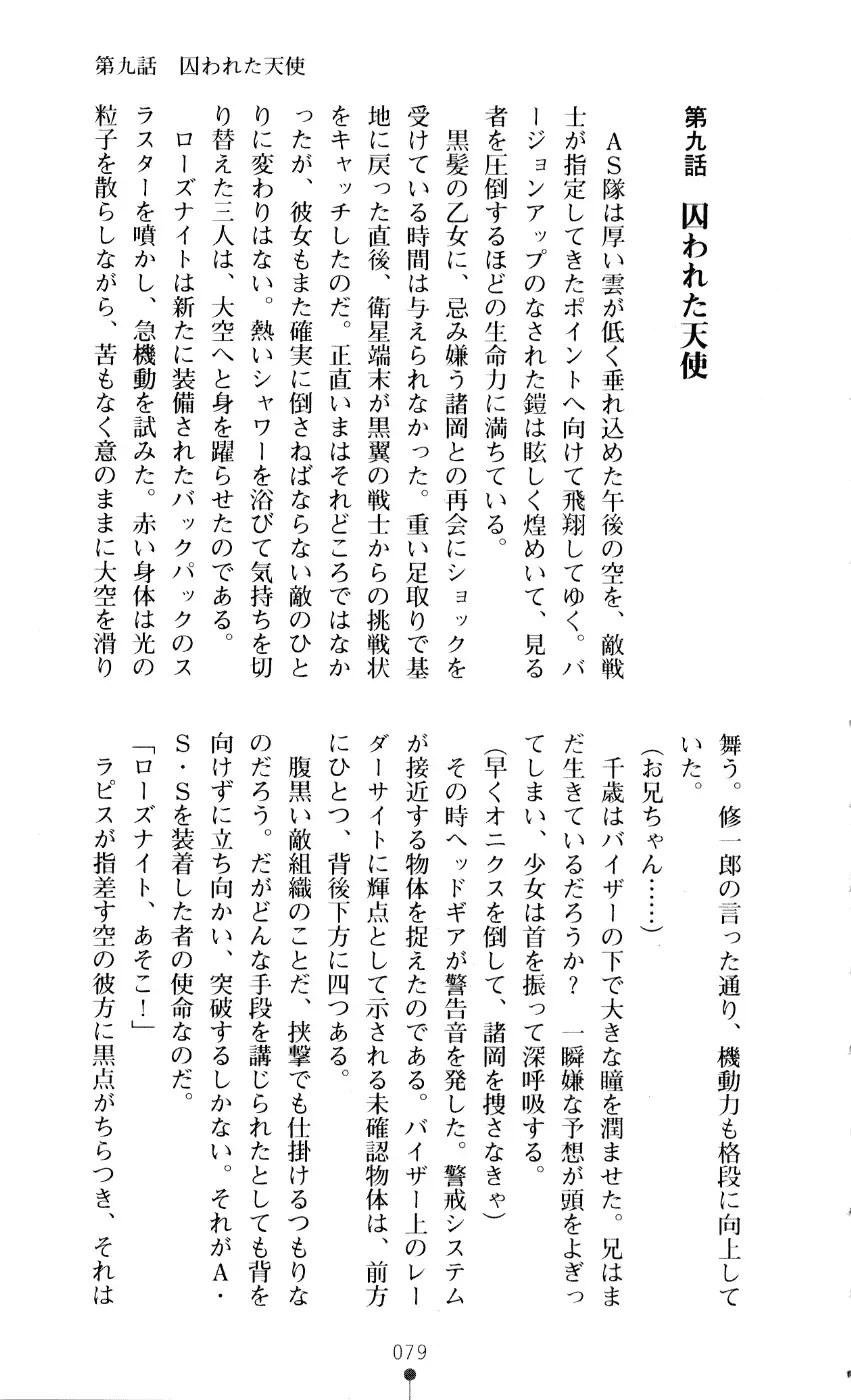 第九話　囚われた天使
第九話　囚われた天使
　ＡＳ隊は厚い雲が低く垂れ込めた午後の空を、敵戦
士が指定してきたポイントへ向けて飛翔してゆく。バ
ージョンアップのなされた鎧は眩しく煌めいて、見る
者を圧倒するほどの生命力に満ちている。
　黒髪の乙女に、忌み嫌う諸岡との再会にショックを
受けている時間は与えられなかった。重い足取りで基
地に戻った直後、衛星端末が黒翼の戦士からの挑戦状
をキャッチしたのだ。正直いまはそれどころではなか
ったが、彼女もまた確実に倒さねばならない敵のひと
りに変わりはない。熱いシャワーを浴びて気持ちを切
り替えた三人は、大空へと身を躍らせたのである。
　ローズナイトは新たに装備されたバックパックのス
ラスターを噴かし、急機動を試みた。赤い身体は光の
粒子を散らしながら、苦もなく意のままに大空を滑り
舞う。修一郎の言った通り、機動力も格段に向上して
いた。
（お兄ちゃん……）
　千歳はバイザーの下で大きな瞳を潤ませた。兄はま
だ生きているだろうか？　一瞬嫌な予想が頭をよぎっ
てしまい、少女は首を振って深呼吸する。
（早くオニクスを倒して、諸岡を捜さなきゃ）
　その時ヘッドギアが警告音を発した。警戒システム
が接近する物体を捉えたのである。バイザー上のレー
ダーサイトに輝点として示される未確認物体は、前方
にひとつ、背後下方に四つある。
　腹黒い敵組織のことだ、挟撃でも仕掛けるつもりな
のだろう。だがどんな手段を講じられたとしても背を
向けずに立ち向かい、突破するしかない。それがＡ・
Ｓ・Ｓを装着した者の使命なのだ。
「ローズナイト、あそこ！」
　ラピスが指差す空の彼方に黒点がちらつき、それは
079